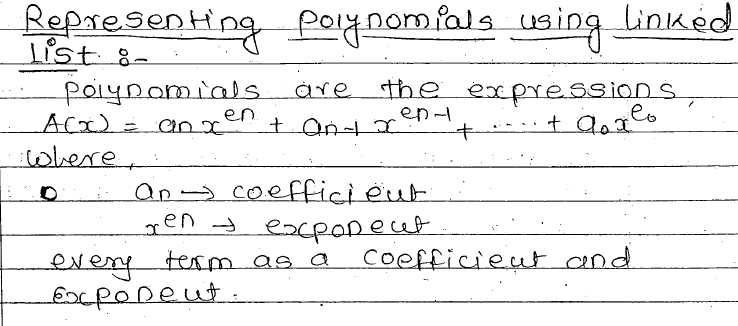 Representing polynomials using linked
List :-
polynomials are the expressions,
A(x) = an x^en + an-1 x^en-1 + ..... + a₀x^e₀
where,
an → coefficient
x^en → exponent
every term as a coefficient and
exponent.